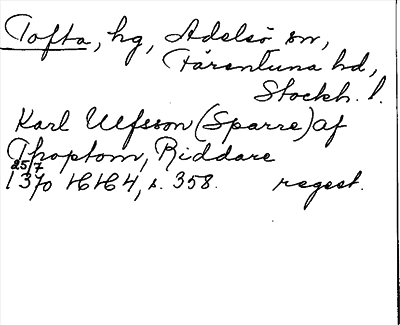 Tofta, hg, Adelsö sn,
Färentuna hd,
Stockh. l.
Karl Ulfsson (Sparre) af
Thoptom, Riddare
25/7
1370 HH 4, s. 358. regest.